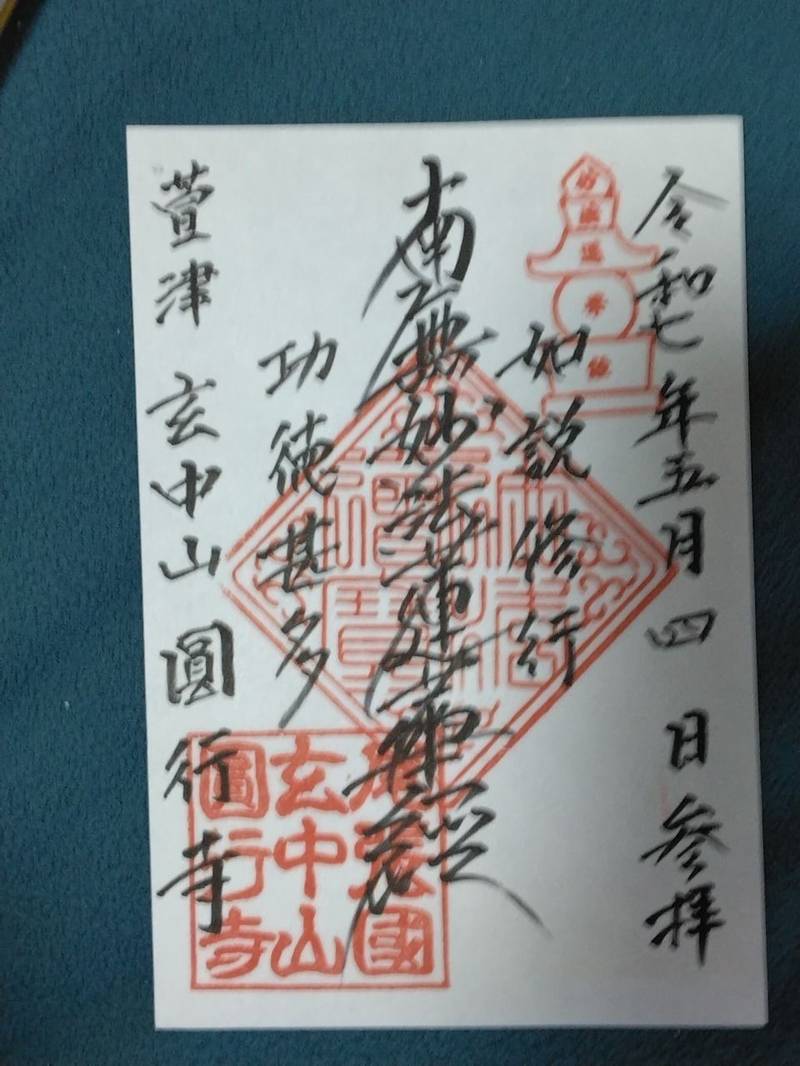 令和七年五月四日参拝
如説修行
南無妙法蓮華経
功徳甚多
萱津 玄中山 圓行寺
妙法蓮華経
尾張國
玄中山
圓行寺